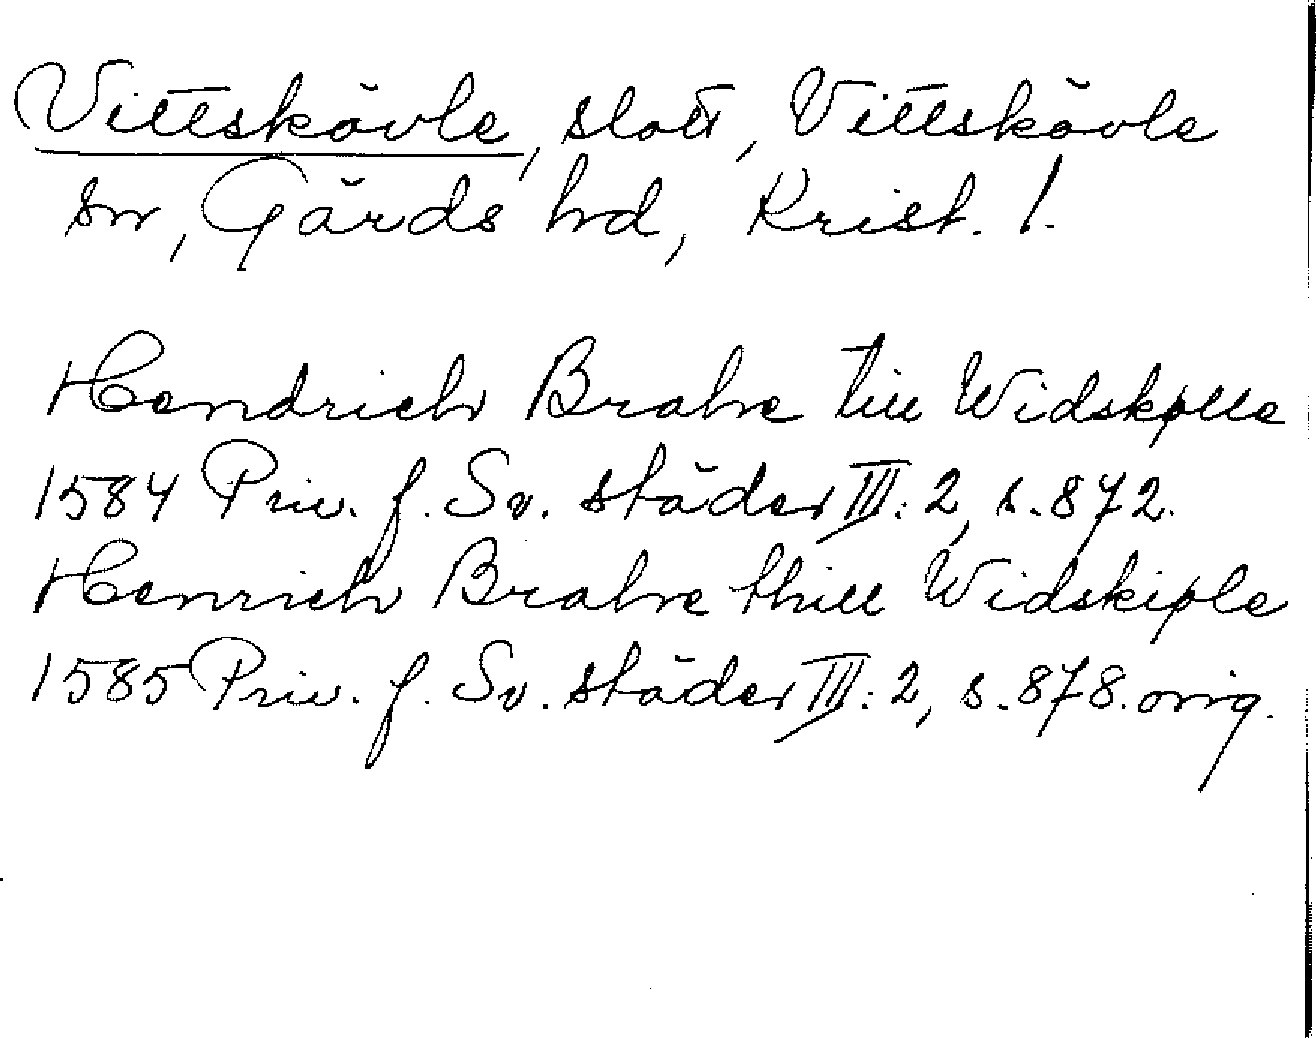 Vittskövle, slott, Vittskövle
sn, Gärds hd, Krist. l.
Hendrich Brahe till Widskølle
1584 Priv. f. Sv. städer III: 2, s. 872.
Henrich Brahe thill Widskiøle
1585 Priv. f. Sv. städer III: 2, s. 878. orig.